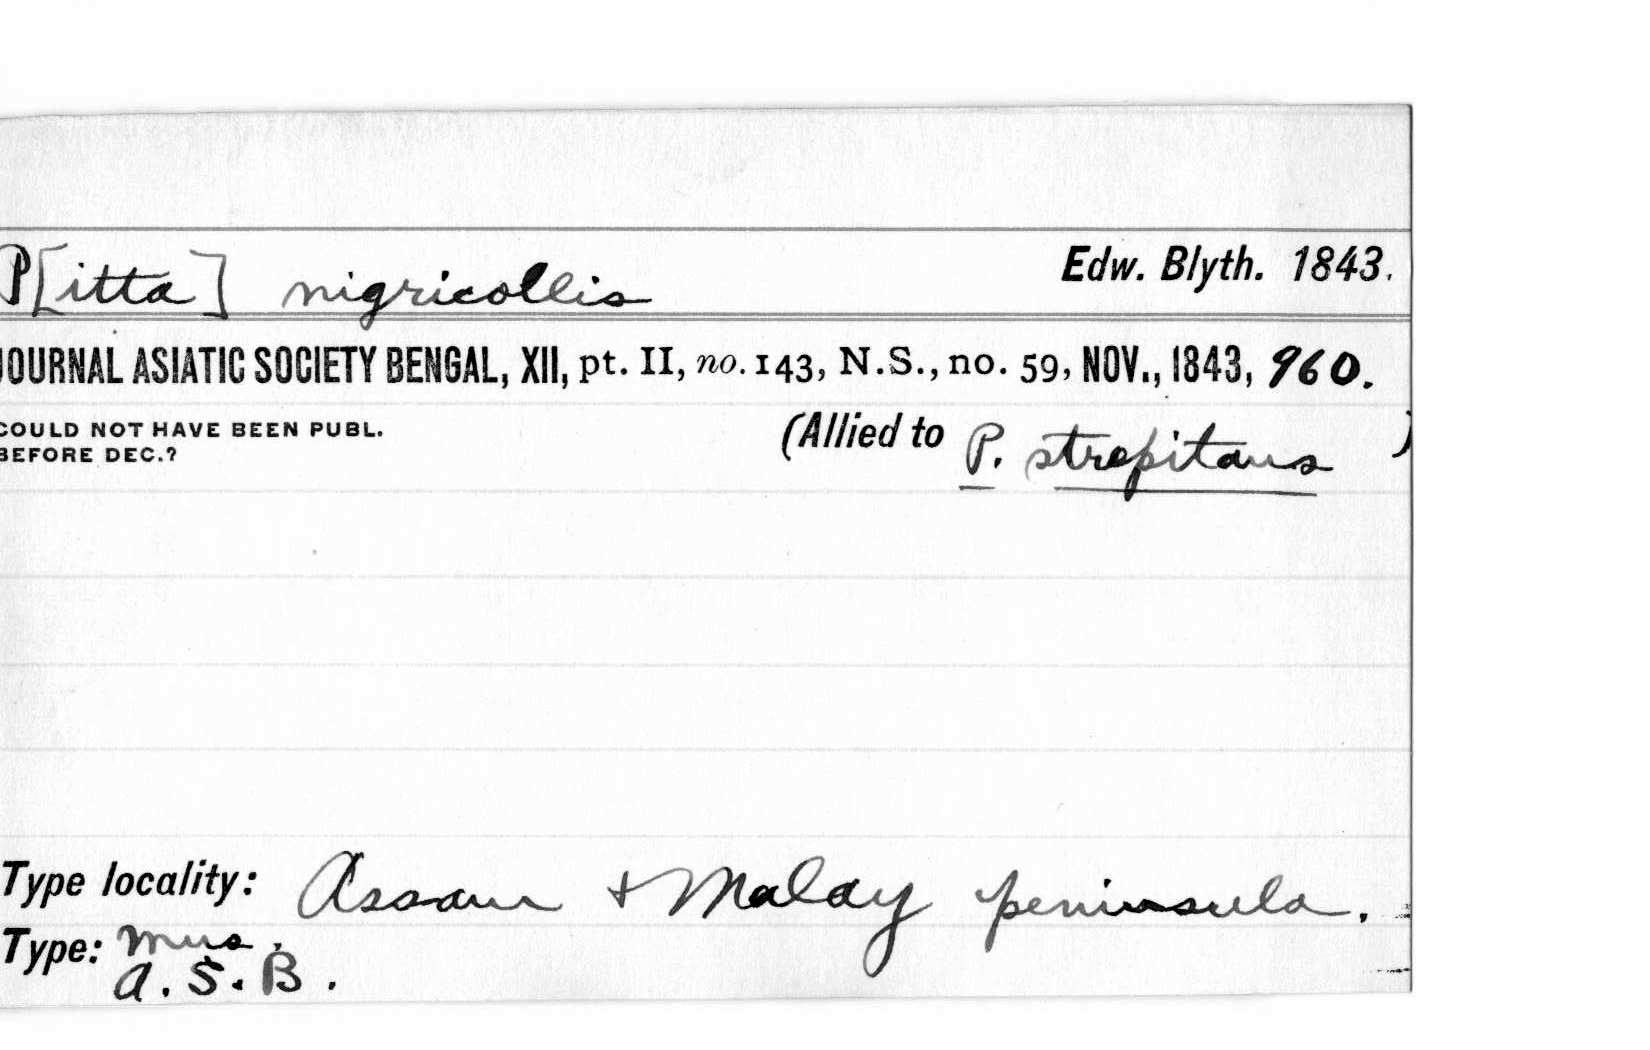 P[itta] nigricollis Edw. Blyth. 1843.
JOURNAL ASIATIC SOCIETY BENGAL, XII, pt. II, no. 143, N.S., no. 59, NOV., 1843, 960.
COULD NOT HAVE BEEN PUBL. (Allied to P. strepitans )
BEFORE DEC.?
Type locality: Assam & Malay peninsula.
Type: Mus.
A.S.B.